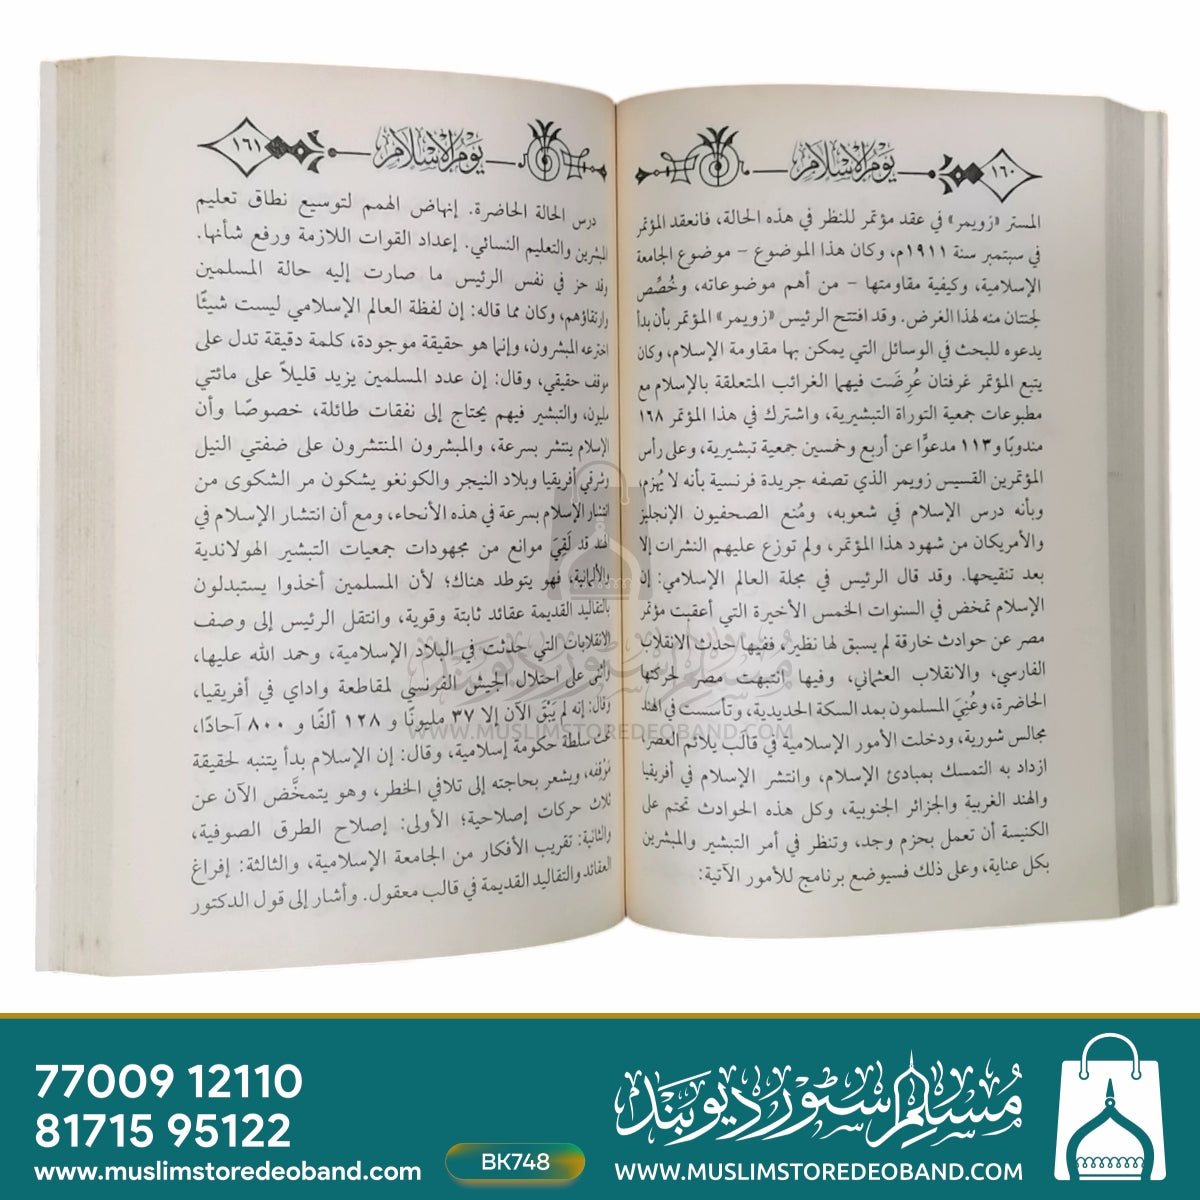 ١٦٠
يَوْمُ الإِسْلَامِ
المستر «زويمر» في عقد مؤتمر للنظر في هذه الحالة، فانعقد المؤتمر
في سبتمبر سنة ١٩١١م، وكان هذا الموضوع - موضوع الجامعة
الإسلامية، وكيفية مقاومتها - من أهم موضوعاته، وخُصِّص
لجنتان منه لهذا الغرض. وقد افتتح الرئيس «زويمر» المؤتمر بأن بدأ
يدعوه للبحث في الوسائل التي يمكن بها مقاومة الإسلام، وكان
يتبع المؤتمر غرفتان عُرِضَت فيهما الغرائب المتعلقة بالإسلام مع
مطبوعات جمعية التوراة التبشيرية، واشترك في هذا المؤتمر ١٦٨
مندوبًا و١١٣ مدعوًّا عن أربع وخمسين جمعية تبشيرية، وعلى رأس
المؤتمرين القسيس زويمر الذي تصفه جريدة فرنسية بأنه لا يُهزم،
وبأنه درس الإسلام في شعوبه، ومُنع الصحفيون الإنجليز
والأمريكان من شهود هذا المؤتمر، ولم توزع عليهم النشرات إلا
بعد تنقيحها. وقد قال الرئيس في مجلة العالم الإسلامي: إن
الإسلام تمخض في السنوات الخمس الأخيرة التي أعقبت مؤتمر
مصر عن حوادث خارقة لم يسبق لها نظير، ففيها حدث الانقلاب
الفارسي، والانقلاب العثماني، وفيها انتبهت مصر لحركتها
الحاضرة، وعُنِيَ المسلمون بمد السكة الحديدية، وتأسست في الهند
مجالس شورية، ودخلت الأمور الإسلامية في قالَب يلائم العصر،
ازداد به التمسك بمبادئ الإسلام، وانتشر الإسلام في أفريقيا
والهند الغربية والجزائر الجنوبية، وكل هذه الحوادث تحتم على
الكنيسة أن تعمل بحزم وجد، وتنظر في أمر التبشير والمبشرين
بكل عناية، وعلى ذلك فسيوضع برنامج للأمور الآتية:
يَوْمُ الإِسْلَامِ
١٦١
درس الحالة الحاضرة. إنهاض الهمم لتوسيع نطاق تعليم
المبشرين والتعليم النسائي. إعداد القوات اللازمة ورفع شأنها.
وقد حز في نفس الرئيس ما صارت إليه حالة المسلمين
وارتقاؤهم، وكان مما قاله: إن لفظة العالم الإسلامي ليست شيئًا
اخترعه المبشرون، وإنما هو حقيقة موجودة، كلمة دقيقة تدل على
موقف حقيقي، وقال: إن عدد المسلمين يزيد قليلاً على مائتي
مليون، والتبشير فيهم يحتاج إلى نفقات طائلة، خصوصًا وأن
الإسلام ينتشر بسرعة، والمبشرون المنتشرون على ضفتي النيل
وشرقي أفريقيا وبلاد النيجر والكونغو يشكون مر الشكوى من
انتشار الإسلام بسرعة في هذه الأنحاء، ومع أن انتشار الإسلام في
الهند قد لَقِيَ موانع من مجهودات جمعيات التبشير الهولاندية
والألمانية، فهو يتوطد هناك؛ لأن المسلمين أخذوا يستبدلون
بالتقاليد القديمة عقائد ثابتة وقوية، وانتقل الرئيس إلى وصف
الانقلابات التي حدثت في البلاد الإسلامية، وحمد الله عليها،
وأثنى على احتلال الجيش الفرنسي لمقاطعة واداي في أفريقيا،
وقال: إنه لم يَبْقَ الآن إلا ٣٧ مليونًا و ١٢٨ ألفًا و ٨٠٠ آحادًا،
تحت سلطة حكومة إسلامية، وقال: إن الإسلام بدأ يتنبه لحقيقة
مَوْقفه، ويشعر بحاجته إلى تلافي الخطر، وهو يتمخَّض الآن عن
ثلاث حركات إصلاحية؛ الأولى: إصلاح الطرق الصوفية،
والثانية: تقريب الأفكار من الجامعة الإسلامية، والثالثة: إفراغ
العقائد والتقاليد القديمة في قالب معقول. وأشار إلى قول الدكتور
مُسلم سٹور دیوبند
WWW.MUSLIMSTOREDEOBAND.COM
77009 12110
81715 95122
www.muslimstoredeoband.com
BK748
مُسلم سٹور دیوبند
WWW.MUSLIMSTOREDEOBAND.COM